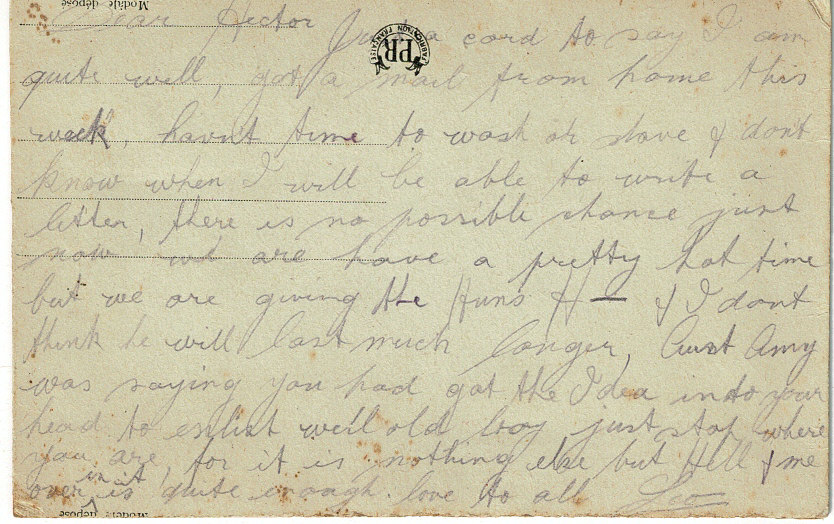 Modèle déposé
Dear Hector Just a card to say I am
FABRICATION FRANÇAISE
PR
quite well, got a mail from home this
week, havnt time to wash or shave & dont
know when I will be able to write a
letter, there is no possible chance just
now we are have a pretty hot time
but we are giving the Huns H— & I dont
think he will last much longer, Aunt Amy
was saying you had got the Idea into your
head to enlist well old boy just stop where
you are, for it is nothing else but Hell & me
in it
over is quite enough love to all Leo
Modèle déposé